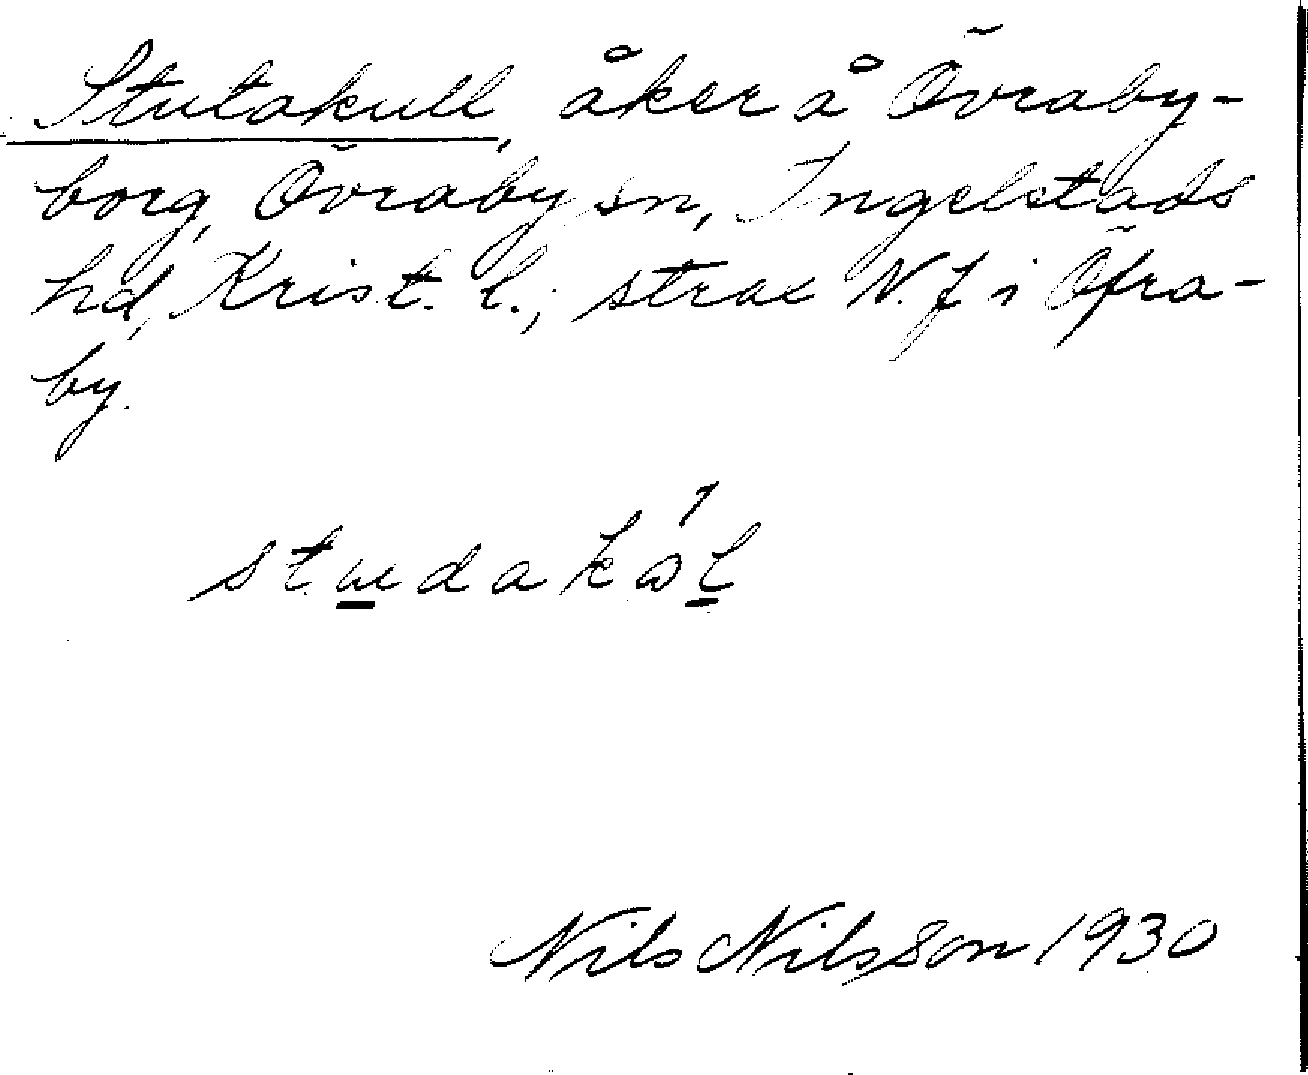 Stutakull, åker å Övraby-
borg, Övraby sn, Ingelstads
hd, Krist. l.; strax N. f i Öfra-
by.
studakol
Nils Nilsson 1930